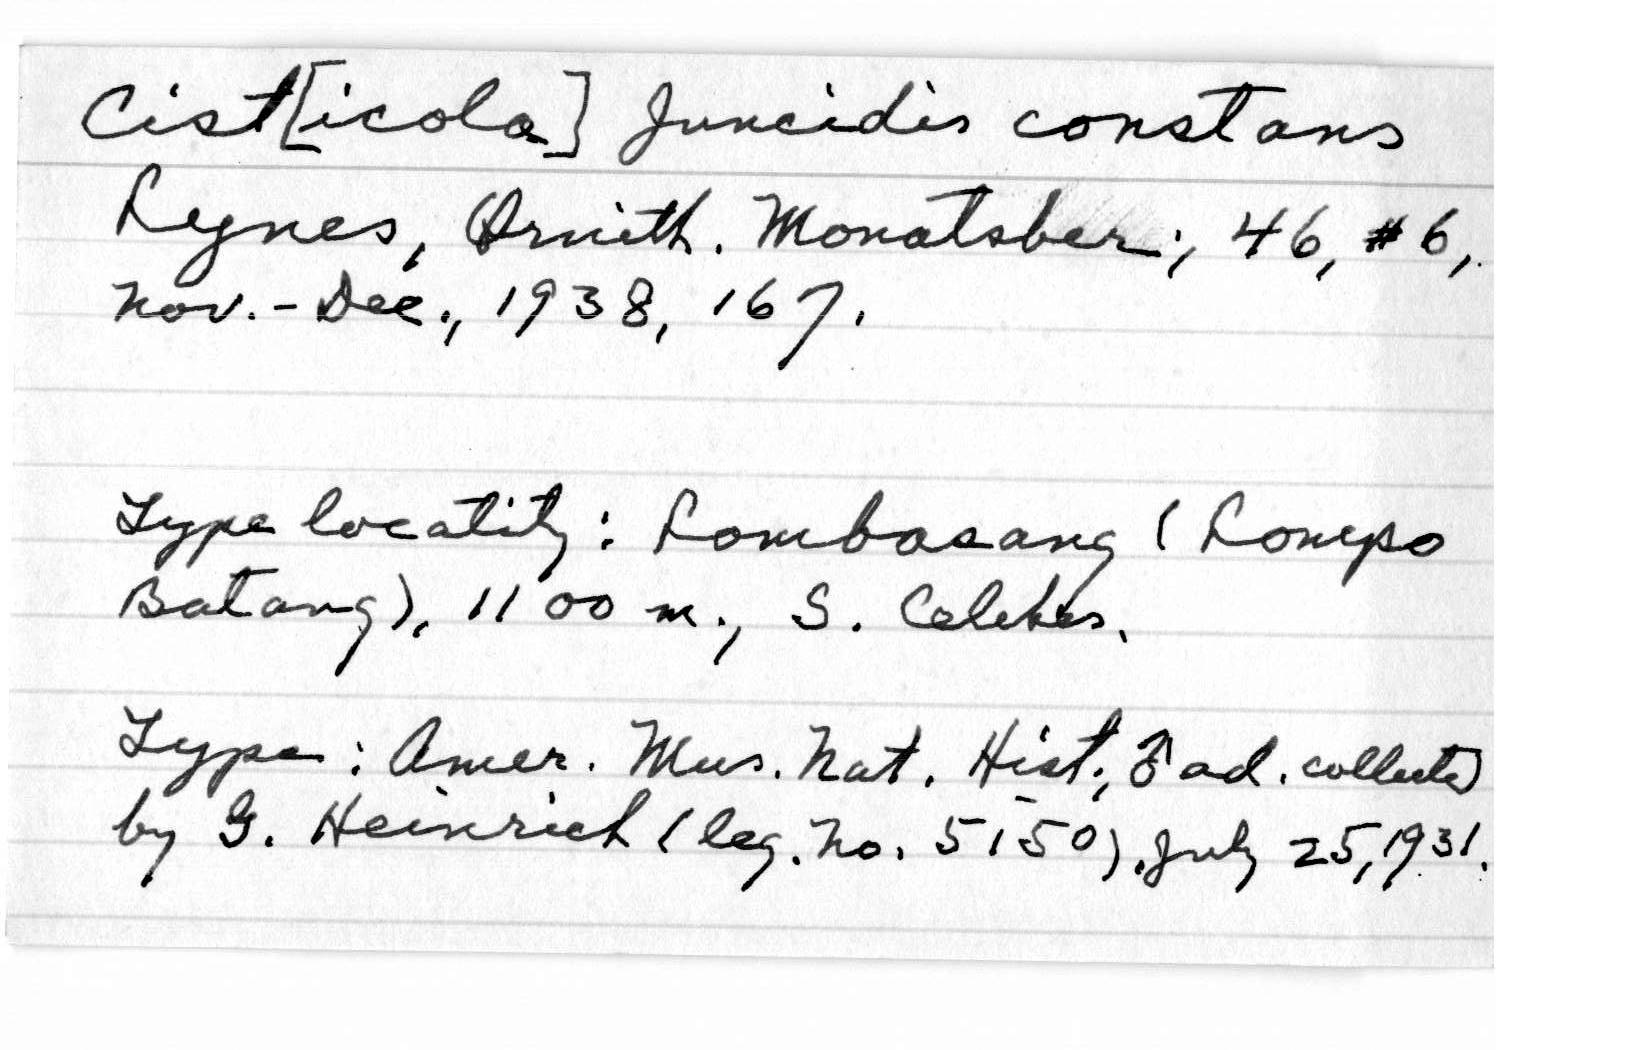 Cist[icola] juncidis constans
Lynes, Ornith. Monatsber., 46, #6,
Nov.-Dec., 1938, 167.
Type locality: Lombasang (Lompo
Batang), 1100 m., S. Celebes.
Type: Amer. Mus. Nat. Hist., ♂ ad. collected
by G. Heinrich (leg. No. 5150), July 25, 1931.